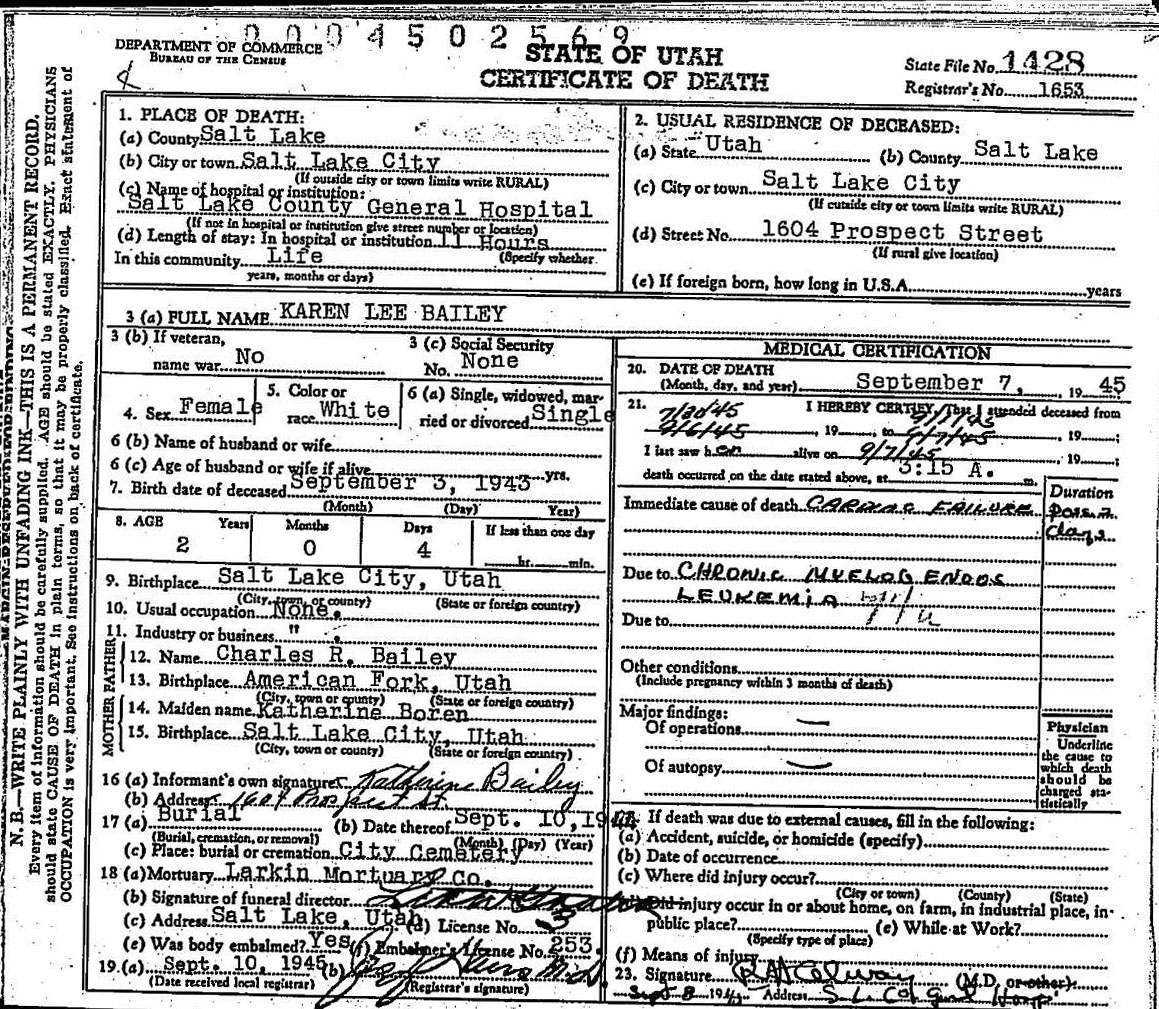 0004502569
DEPARTMENT OF COMMERCE
BUREAU OF THE CENSUS
STATE OF UTAH
CERTIFICATE OF DEATH
State File No. 1428
Registrar's No. 1653
N. B.—WRITE PLAINLY WITH UNFADING INK—THIS IS A PERMANENT RECORD.
Every item of information should be carefully supplied. AGE should be stated EXACTLY. PHYSICIANS
should state CAUSE OF DEATH in plain terms, so that it may be properly classified. Exact statement of
OCCUPATION is very important. See instructions on back of certificate.
1. PLACE OF DEATH:
(a) County Salt Lake
(b) City or town Salt Lake City
(If outside city or town limits write RURAL)
(c) Name of hospital or institution:
Salt Lake County General Hospital
(If not in hospital or institution give street number or location)
(d) Length of stay: In hospital or institution 11 Hours
(Specify whether
In this community Life
years, months or days)
2. USUAL RESIDENCE OF DECEASED:
(a) State Utah (b) County Salt Lake
(c) City or town Salt Lake City
(If outside city or town limits write RURAL)
(d) Street No. 1604 Prospect Street
(If rural give location)
(e) If foreign born, how long in U.S.A. years
3 (a) FULL NAME KAREN LEE BAILEY
3 (b) If veteran,
name war No
3 (c) Social Security
No. None
4. Sex Female
5. Color or
race White
6 (a) Single, widowed, mar-
ried or divorced Single
6 (b) Name of husband or wife
6 (c) Age of husband or wife if alive yrs.
7. Birth date of deceased September 3, 1943
(Month) (Day) Year)
8. AGE Years Months Days If less than one day
2 0 4 hr. min.
9. Birthplace Salt Lake City, Utah
(City, town, or county) (State or foreign country)
10. Usual occupation None.
11. Industry or business " .
FATHER
12. Name Charles R. Bailey
13. Birthplace American Fork, Utah
(City, town or county) (State or foreign country)
MOTHER
14. Maiden name Katherine Boren
15. Birthplace Salt Lake City, Utah
(City, town or county) (State or foreign country)
16 (a) Informant's own signature Katherine Bailey
(b) Address 1604 Prospect St.
17 (a) Burial (b) Date thereof Sept. 10, 194
(Burial, cremation, or removal) (Month) (Day) (Year)
(c) Place: burial or cremation City Cemetery
18 (a) Mortuary Larkin Mortuary Co.
(b) Signature of funeral director
(c) Address Salt Lake, Utah (d) License No. 3
(e) Was body embalmed? Yes (f) Embalmer's License No. 253.
19. (a) Sept. 10, 1945 (b)
(Date received local registrar) (Registrar's signature)
MEDICAL CERTIFICATION
20. DATE OF DEATH
(Month, day, and year) September 7, 19 45
21. 7/30/45 I HEREBY CERTIFY, That I attended deceased from 9/7/45
9/6/45, 19 , to 9/7/45, 19 ;
I last saw her alive on 9/7/45, 19 ;
death occurred on the date stated above, at 3:15 A. m.
Duration
Immediate cause of death CARDIAC FAILURE
days
Due to CHRONIC MYELOGENOUS
LEUKEMIA
Due to
Other conditions
(Include pregnancy within 3 months of death)
Major findings:
Of operations —
Of autopsy —
Physician
Underline
the cause to
which death
should be
charged sta-
tistically
If death was due to external causes, fill in the following:
(a) Accident, suicide, or homicide (specify)
(b) Date of occurrence
(c) Where did injury occur?
(City or town) (County) (State)
Did injury occur in or about home, on farm, in industrial place, in-
public place? (e) While at Work?
(Specify type of place)
(f) Means of injury
23. Signature (M.D. or other)
Sept 8 194 Address S. L. Co. Gen Hosp